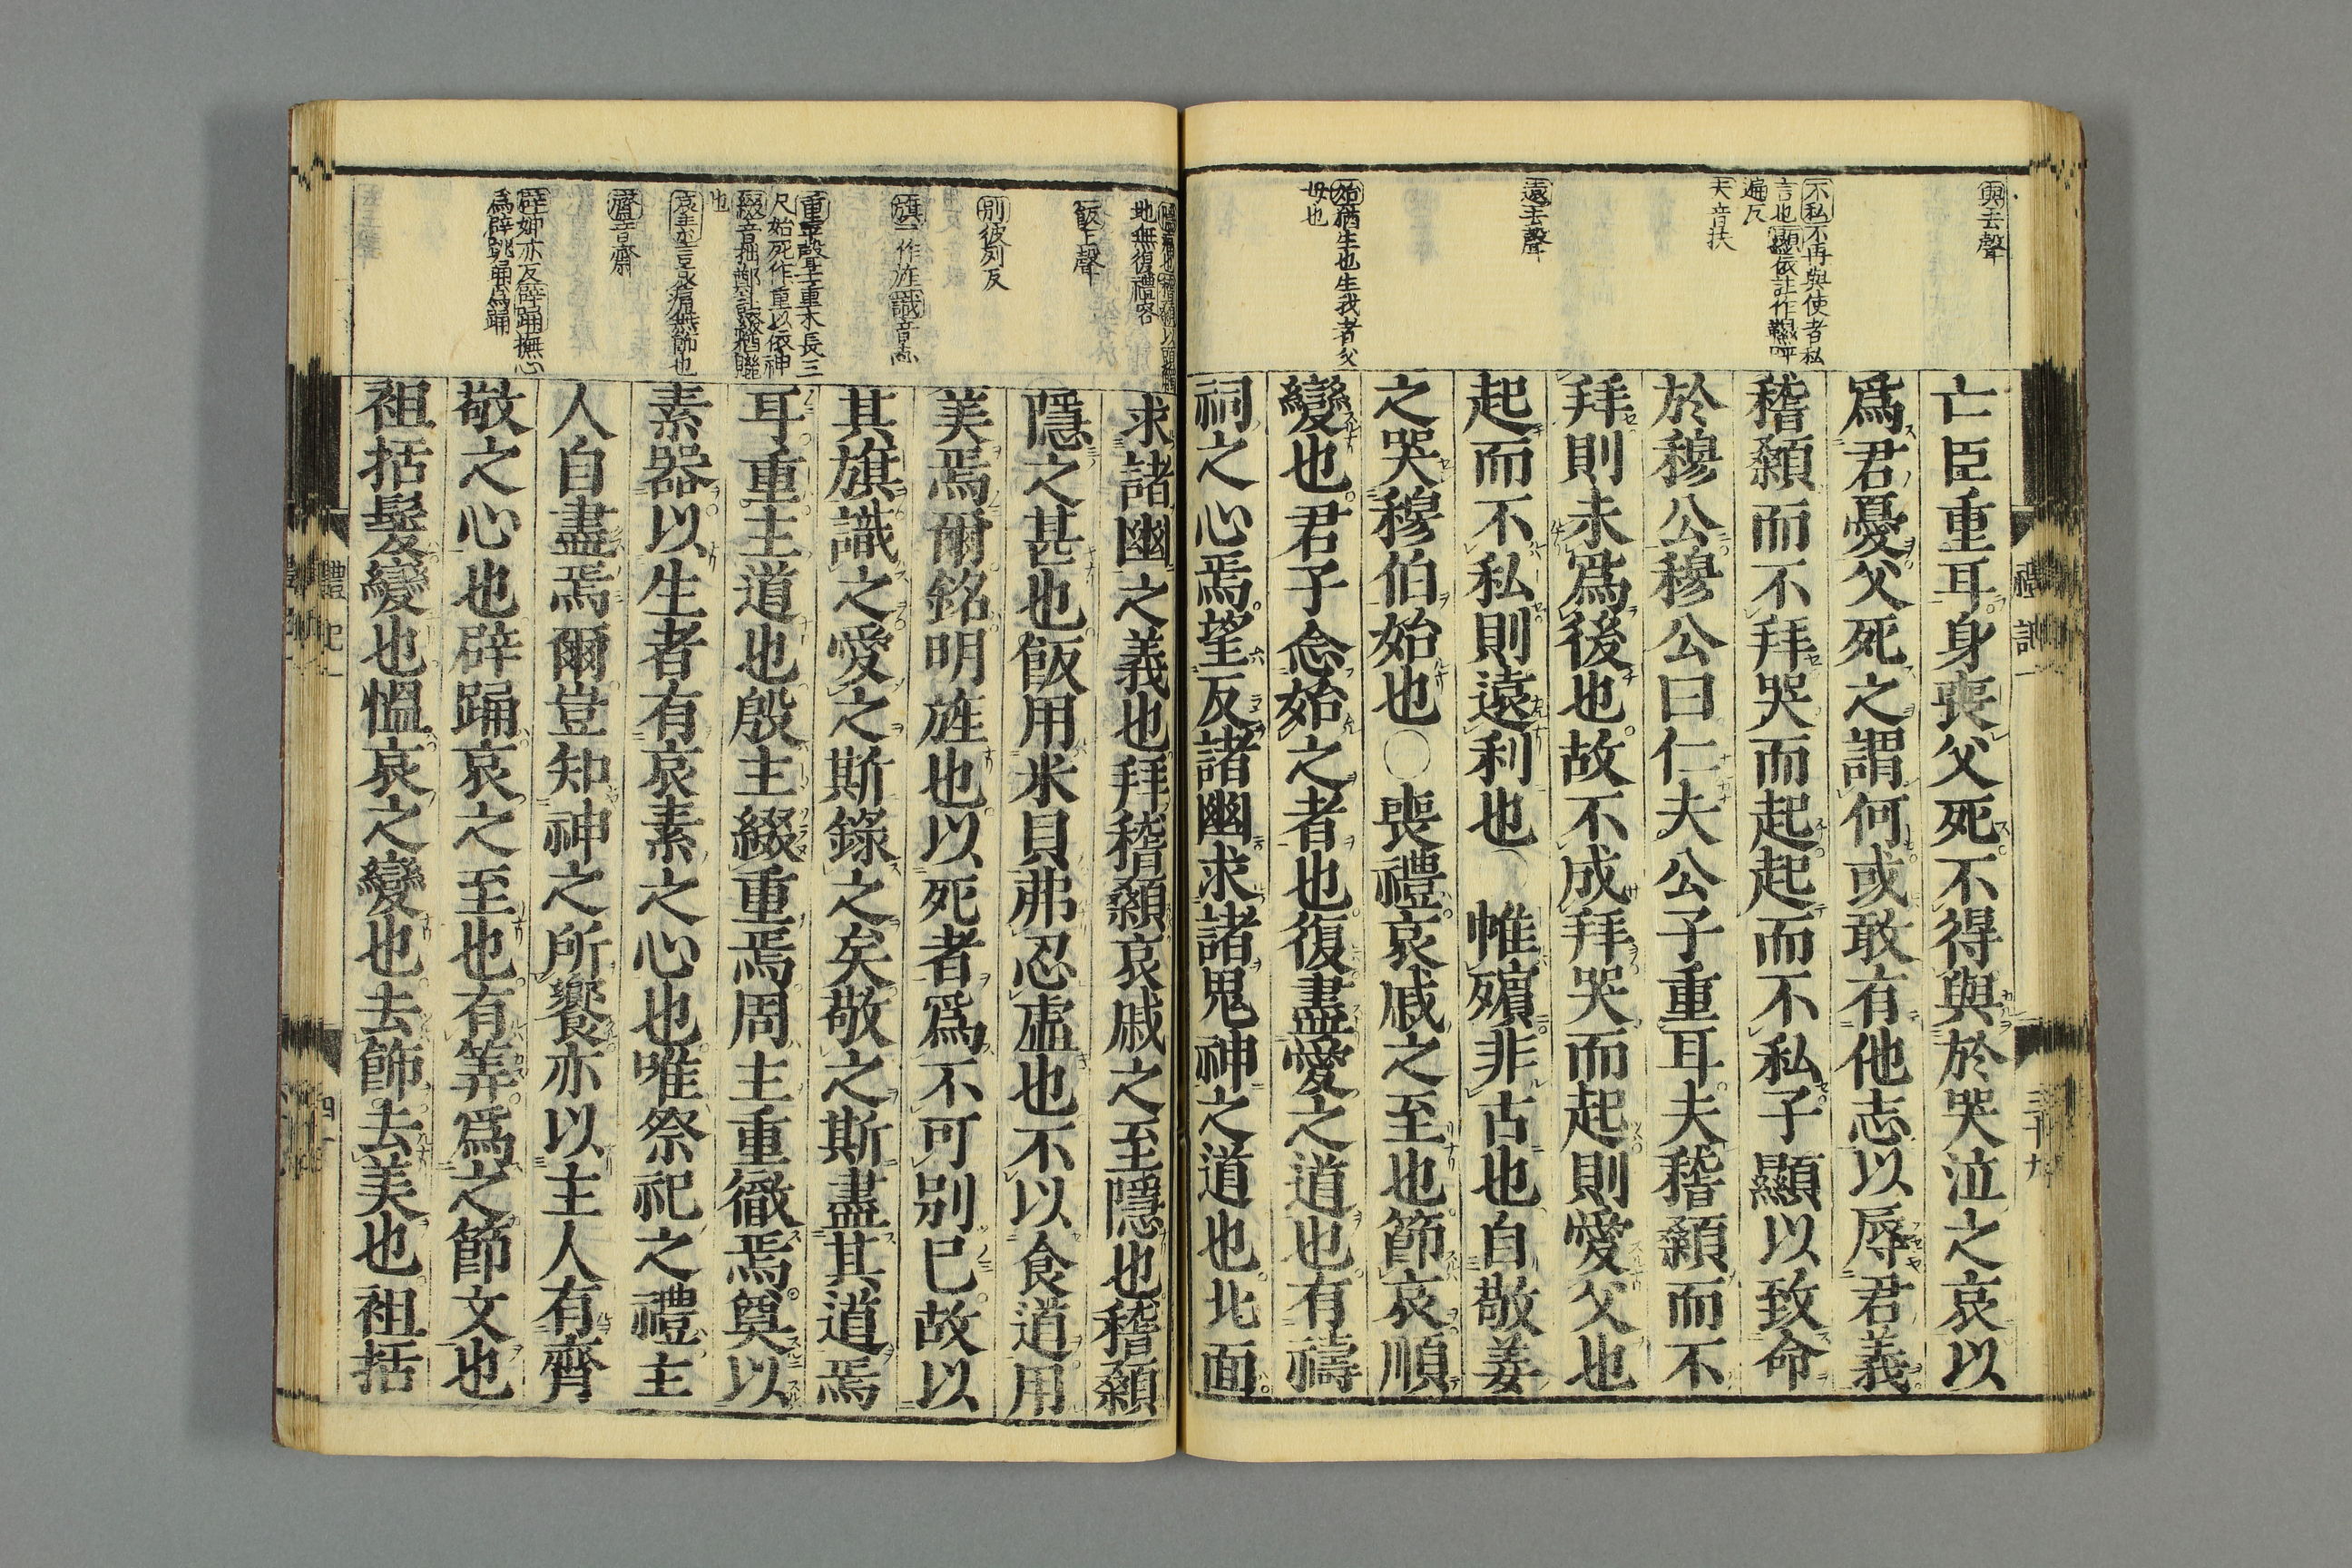 與去聲
不私不再與使者私
言也顯依註作韅呼
遍反
夫音扶
遠去聲
始猶生也生我者父
母也
亡臣重耳身喪父死不得與於哭泣之哀以
爲君憂父死之謂何或敢有他志以辱君義
稽顙而不拜哭而起起而不私子顯以致命
於穆公穆公曰仁夫公子重耳夫稽顙而不
拜則未爲後也故不成拜哭而起則愛父也
起而不私則遠利也○帷殯非古也自敬姜
之哭穆伯始也○喪禮哀戚之至也節哀順
變也君子念始之者也復盡愛之道也有禱
祠之心焉望反諸幽求諸鬼神之道也北面
禮記一
三十九
地無復禮容
飯上聲
別彼列反
旗一作旌識音志
重平聲主重木長三
尺始死作重以依神
綴音拙鄭註綴猶聯
也
哀素言哀痛無飾也
齊音齋
辟婢亦反辟踊撫心
爲辟跳踊爲踊
求諸幽之義也拜稽顙哀戚之至隱也稽顙
隱之甚也飯用米貝弗忍虛也不以食道用
美焉爾銘明旌也以死者爲不可別已故以
其旗識之愛之斯錄之矣敬之斯盡其道焉
耳重主道也殷主綴重焉周主重徹焉奠以
素器以生者有哀素之心也唯祭祀之禮主
人自盡焉爾豈知神之所饗亦以主人有齊
敬之心也辟踊哀之至也有筭爲之節文也
袒括髮變也慍哀之變也去飾去美也袒括
禮記一
四十